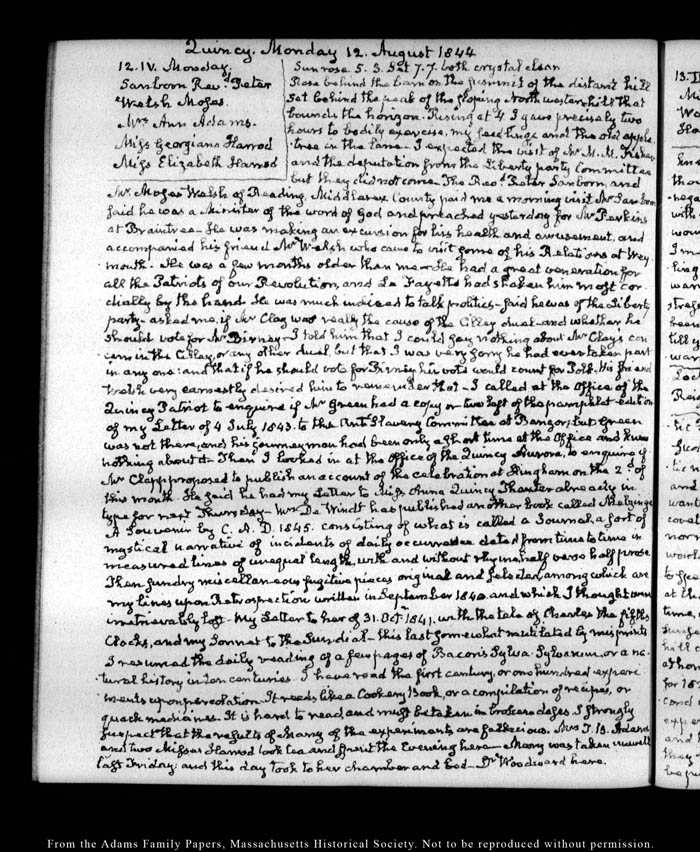 Quincy. Monday 12. August 1844
12. IV. Monday.
Sanborn Revd. Peter
Welsh Moses.
Mrs Ann Adams.
Miss Georgiana Harrod
Miss Elizabeth Harrod
Sun rose 5. 3. Set 7. 7. both crystal clear
Rose behind the barn on the summit of the distant hill
Set behind the peak of the sloping Northwestern hill that
bounds the horizon. Rising at 4 I gave precisely two
hours to bodily exercise, my and the old apple
tree in the lane. I expected the visit of Mr. M. M. Fisher
and the deputation from the Liberty party Committee
but they did not come. The Revd. Peter Sanborn, and
Mr. Moses Welsh of Reading, Middlesex County paid me a morning visit. Mr Sanborn
said he was a Minister of the word of God, and preached yesterday for Mr Perkins
at Braintree. He was making an excursion for his health and amusement, and
accompanied his friend Mr Welsh who came to visit some of his Relations at Wey-
mouth. He was a few months older than me. He had a great veneration for
all the Patriots of our Revolution, and La Fayette had shaken him most cor-
dially by the hand. He was much inclined to talk politics - said he was of the Liberty
party - asked me, if Mr Clay was really the cause of the Cilley duel - and whether he
should vote for Mr Birney - I told him that I could say nothing about Mr Clay's con-
cern in the Cilley, or any other duel, but that I was very sorry he had ever taken part
in any one: and that if he should vote for Birney his vote would count for Polk. His friend
Welsh very earnestly desired him to remember that - I called at the Office of the
Quincy Patriot to enquire if Mr Green had a copy or two left of the pamphlet edition
of my Letter of 4 July 1843. to the Anti Slavery Committee at Bangor; but Green
was not there, and his journeyman had been only a short time at the Office and knew
nothing about it - Then I looked in at the office of the Quincy Aurora, to enquire if
Mr Clapp proposed to publish an account of the celebration at Hingham on the 2d of
this month. He said he had my Letter to Miss Anna Quincy Thaxter already in
type for next Thursday - Mrs De Windt has published another book called Melzinga
A Souvenir by C. A. D. 1845. consisting of what is called a Journal, a sort of
mystical narrative of incidents of daily occurrence dated from time to time in
measured lines of unequal length, with and without rhyme half verse half prose
Then sundry miscellaneous fugitive pieces original and selected, among which are
my lines upon Retrospection written in September 1840. and which I thought were
irretrievably lost - My Letter to her of 31. Octr 1841, with the tale of Charles the fifth's
Clocks, and my Sonnet to the Sun dial - this last somewhat mutilated by misprints
I resumed the daily reading of a few pages of Bacon's Sylva Sylvarum, or a na-
tural history in ten centuries - I have read the first century, or one hundred experi
ments upon percolation. It reads like a Cookery Book, or a compilation of recipes, or
quack medicines. It is hard to read, and must be taken in broken doses. I strongly
suspect that the results of many of the experiments are fallacious. Mrs T. B. Adams
and two Misses Harrod took tea and spent the Evening here - Mary was taken unwell
last Friday; and this day took to her chamber and bed - Dr Woodward here.
From the Adams Family Papers, Massachusetts Historical Society. Not to be reproduced without permission.